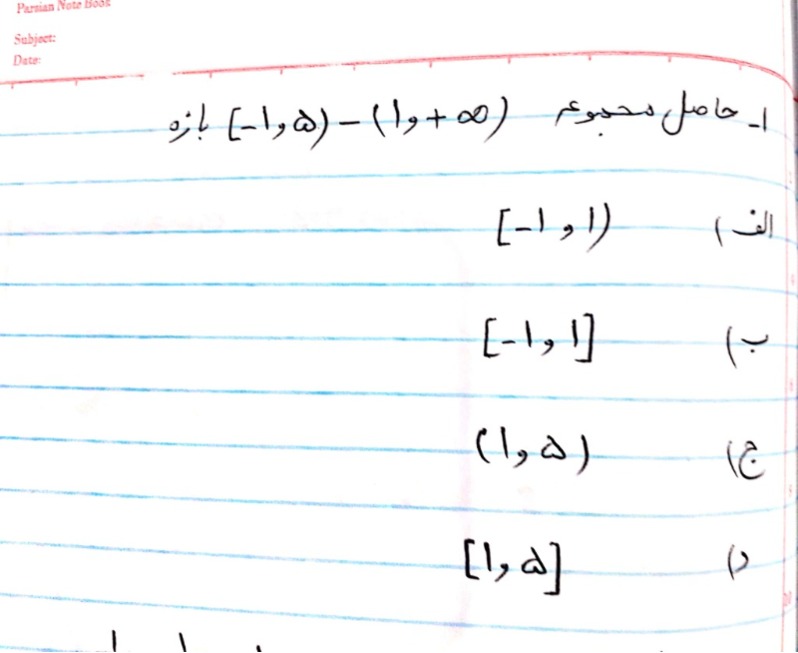 Parsian Note Book
Subject:
Date:
۱- حاصل مجموعه [-۱,۵) - (۱,+∞) بازه
الف) [-۱,۱)
ب) [-۱,۱]
ج) (۱,۵)
د) [۱,۵]